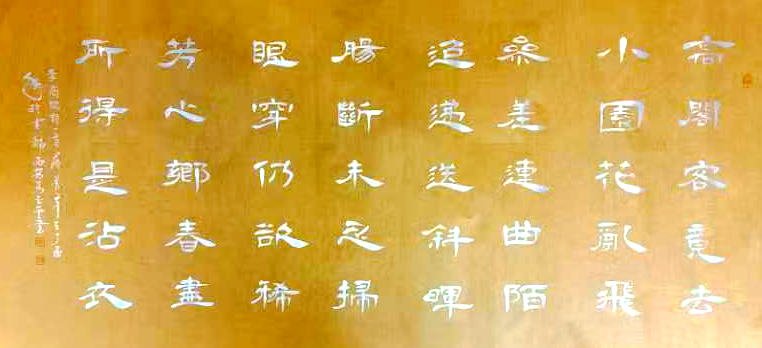 高閣客竟去
小園花亂飛
參差連曲陌
迢遞送斜暉
腸斷未忍掃
眼穿仍欲稀
芳心鄉春盡
所得是沾衣
李商隱詩一首